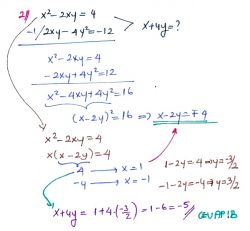 2)
x²-2xy=4
-1/2xy-4y²=-12
x+4y=?
x²-2xy=4
-2xy+4y²=12
x²-4xy+4y²=16
(x-2y)²=16 => x-2y=∓4
x²-2xy=4
x(x-2y)=4
4 → x=1
-4 → x=-1
1-2y=4 => y=-3/2
-1-2y=-4 => y=3/2
x+4y= 1+4·(-3/2)=1-6=-5
CEVAP: B